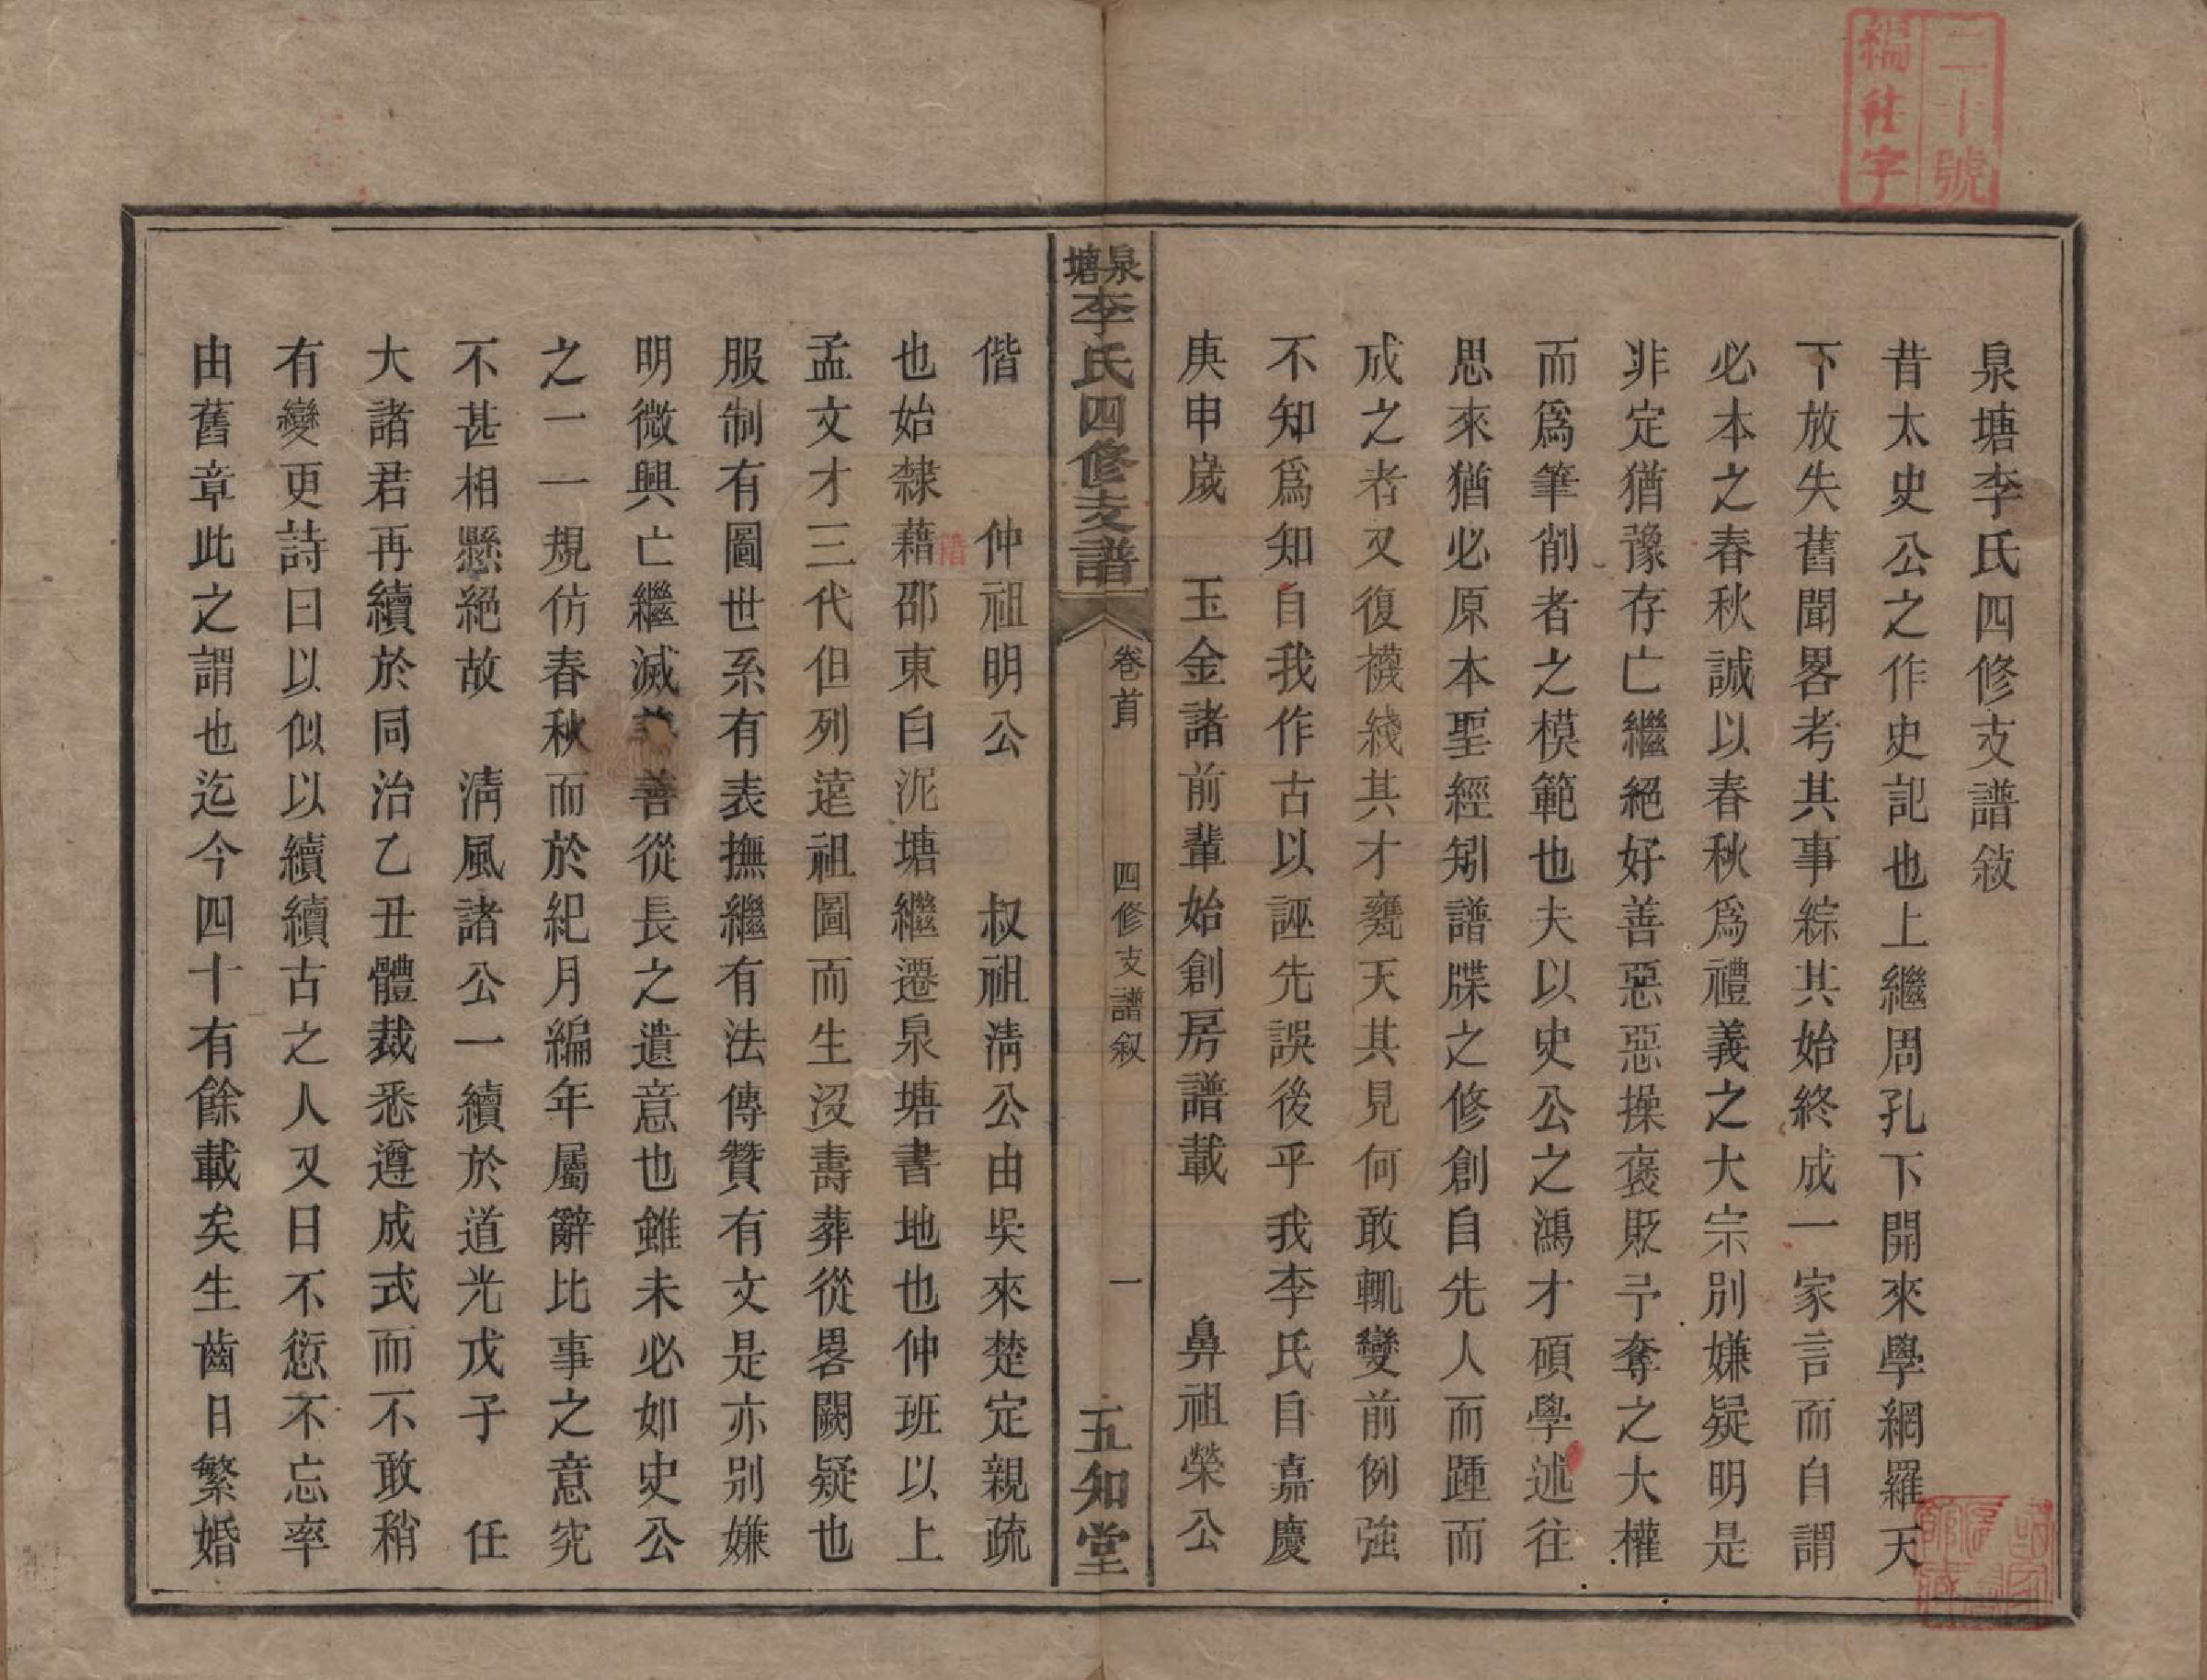 二十號
編社字
泉塘李氏四修支譜敍
昔太史公之作史記也上繼周孔下開來學網羅天
下放失舊聞畧考其事綜其始終成一家言而自謂
必本之春秋誠以春秋爲禮義之大宗別嫌疑明是
非定猶豫存亡繼絕好善惡惡操褒貶予奪之大權
而爲筆削者之模範也夫以史公之鴻才碩學述往
思來猶必原本聖經矧譜牒之修創自先人而踵而
成之者又復襪綫其才甕天其見何敢輒變前例強
不知爲知自我作古以誣先誤後乎我李氏自嘉慶
庚申歲　玉金諸前輩始創房譜載　鼻祖榮公
泉塘李氏四修支譜
卷首
四修支譜叙
一
五知堂
偕　仲祖明公　叔祖淸公由吳來楚定親疏
也始隸藉邵東白泥塘繼遷泉塘書地也仲班以上
孟文才三代但列遠祖圖而生沒壽葬從畧闕疑也
服制有圖世系有表撫繼有法傳贊有文是亦別嫌
明微興亡繼滅善從長之遺意也雖未必如史公
之一一規仿春秋而於紀月編年屬辭比事之意究
不甚相懸絕故　淸風諸公一續於道光戊子　任
大諸君再續於同治乙丑體裁悉遵成式而不敢稍
有變更詩曰以似以續續古之人又曰不愆不忘率
由舊章此之謂也迄今四十有餘載矣生齒日繁婚